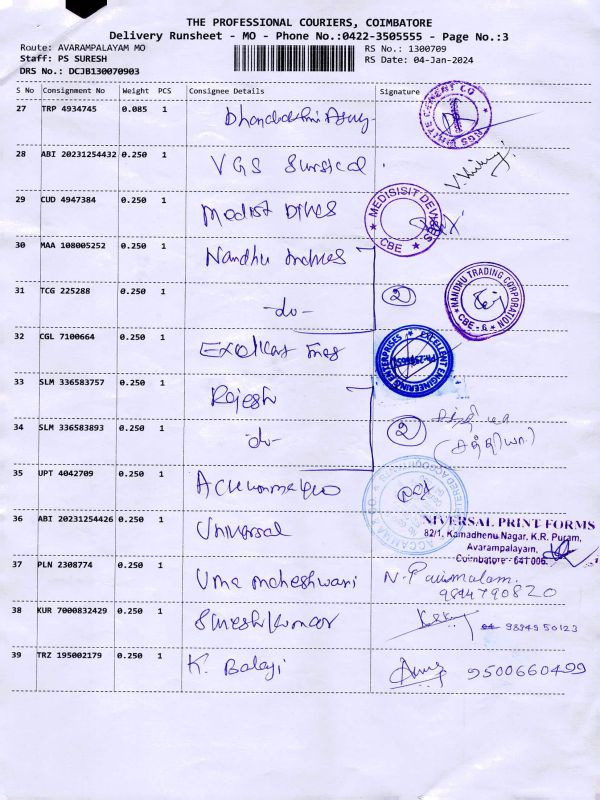 THE PROFESSIONAL COURIERS, COIMBATORE
Delivery Runsheet - MO - Phone No.:0422-3505555 - Page No.:3
Route: AVARAMPALAYAM MO
RS No.: 1300709
Staff: PS SURESH
RS Date: 04-Jan-2024
DRS No.: DCJB130070903
S No Consignment No Weight PCS Consignee Details Signature
27 TRP 4934745 0.085 1
28 ABI 20231254432 0.250 1 VGS Surgical
29 CUD 4947384 0.250 1
MEDISISIT DEVICES
CBE
30 MAA 108005252 0.250 1 Nandhu
31 TCG 225288 0.250 1 -do- 2
NANDHU TRADING CORPORATION
CBE - 6
32 CGL 7100664 0.250 1
EXCELLENT ENGINEERING ENTERPRISES
33 SLM 336583757 0.250 1 Rajesh
34 SLM 336583893 0.250 1 -do- 2
35 UPT 4042709 0.250 1
36 ABI 20231254426 0.250 1 Universal
NIVERSAL PRINT FORMS
82/1, Kamadhenu Nagar, K.R. Puram,
Avarampalayam,
Coimbatore - 641 006.
37 PLN 2308774 0.250 1 Uma maheshwari N. Parimalam.
9894790820
38 KUR 7000832429 0.250 1 Sureshkumar 98949 50123
39 TRZ 195002179 0.250 1 K. Balaji 9500660499